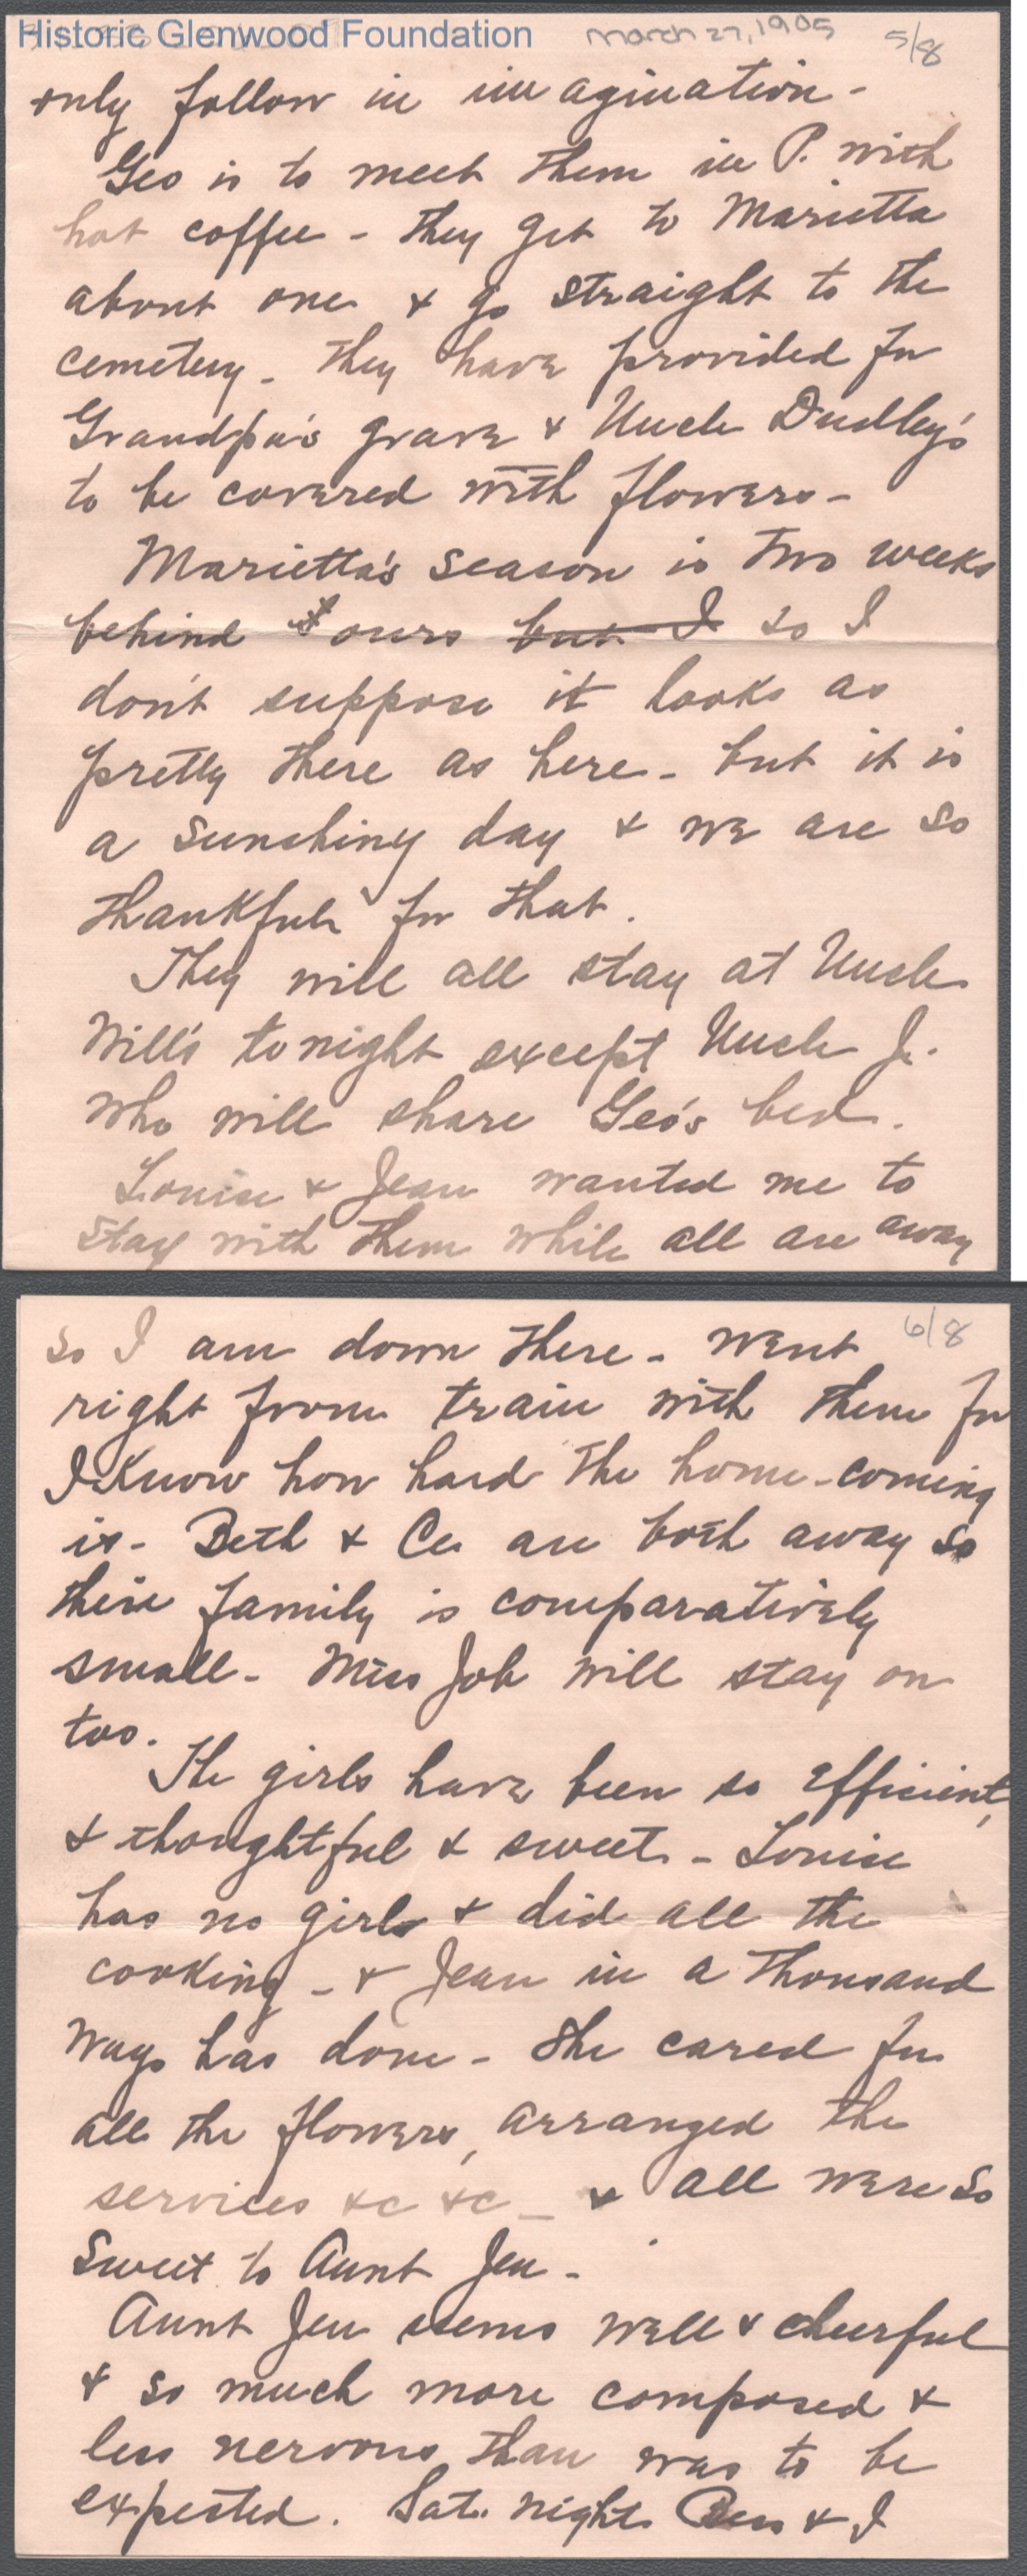 Historic Glenwood Foundation March 27, 1905 5/8
only follow in imagination -
Geo is to meet them in P. with
hot coffee - they get to Marietta
about one & go straight to the
cemetery - they have provided for
Grandpa's grave & Uncle Dudley's
to be covered with flowers -
Marietta's season is two weeks
behind ours but I so I
don't suppose it looks as
pretty there as here - but it is
a sunshiny day & we are so
thankful for that.
They will all stay at Uncle
Will's tonight except Uncle J.
who will share Geo's bed.
Louise & Jean wanted me to
stay with them while all are away
6/8
so I am down there - went
right from train with them for
I know how hard the home-coming
is - Beth & Ce are both away so
their family is comparatively
small - Miss Job will stay on
too.
The girls have been so efficient,
& thoughtful & sweet - Louise
has no girl & did all the
cooking - & Jean in a thousand
ways has done - She cared for
all the flowers, arranged the
services &c &c - & all were so
sweet to Aunt Jen -
Aunt Jen seems well & cheerful
& so much more composed &
less nervous than was to be
expected. Sat. night Bess & I